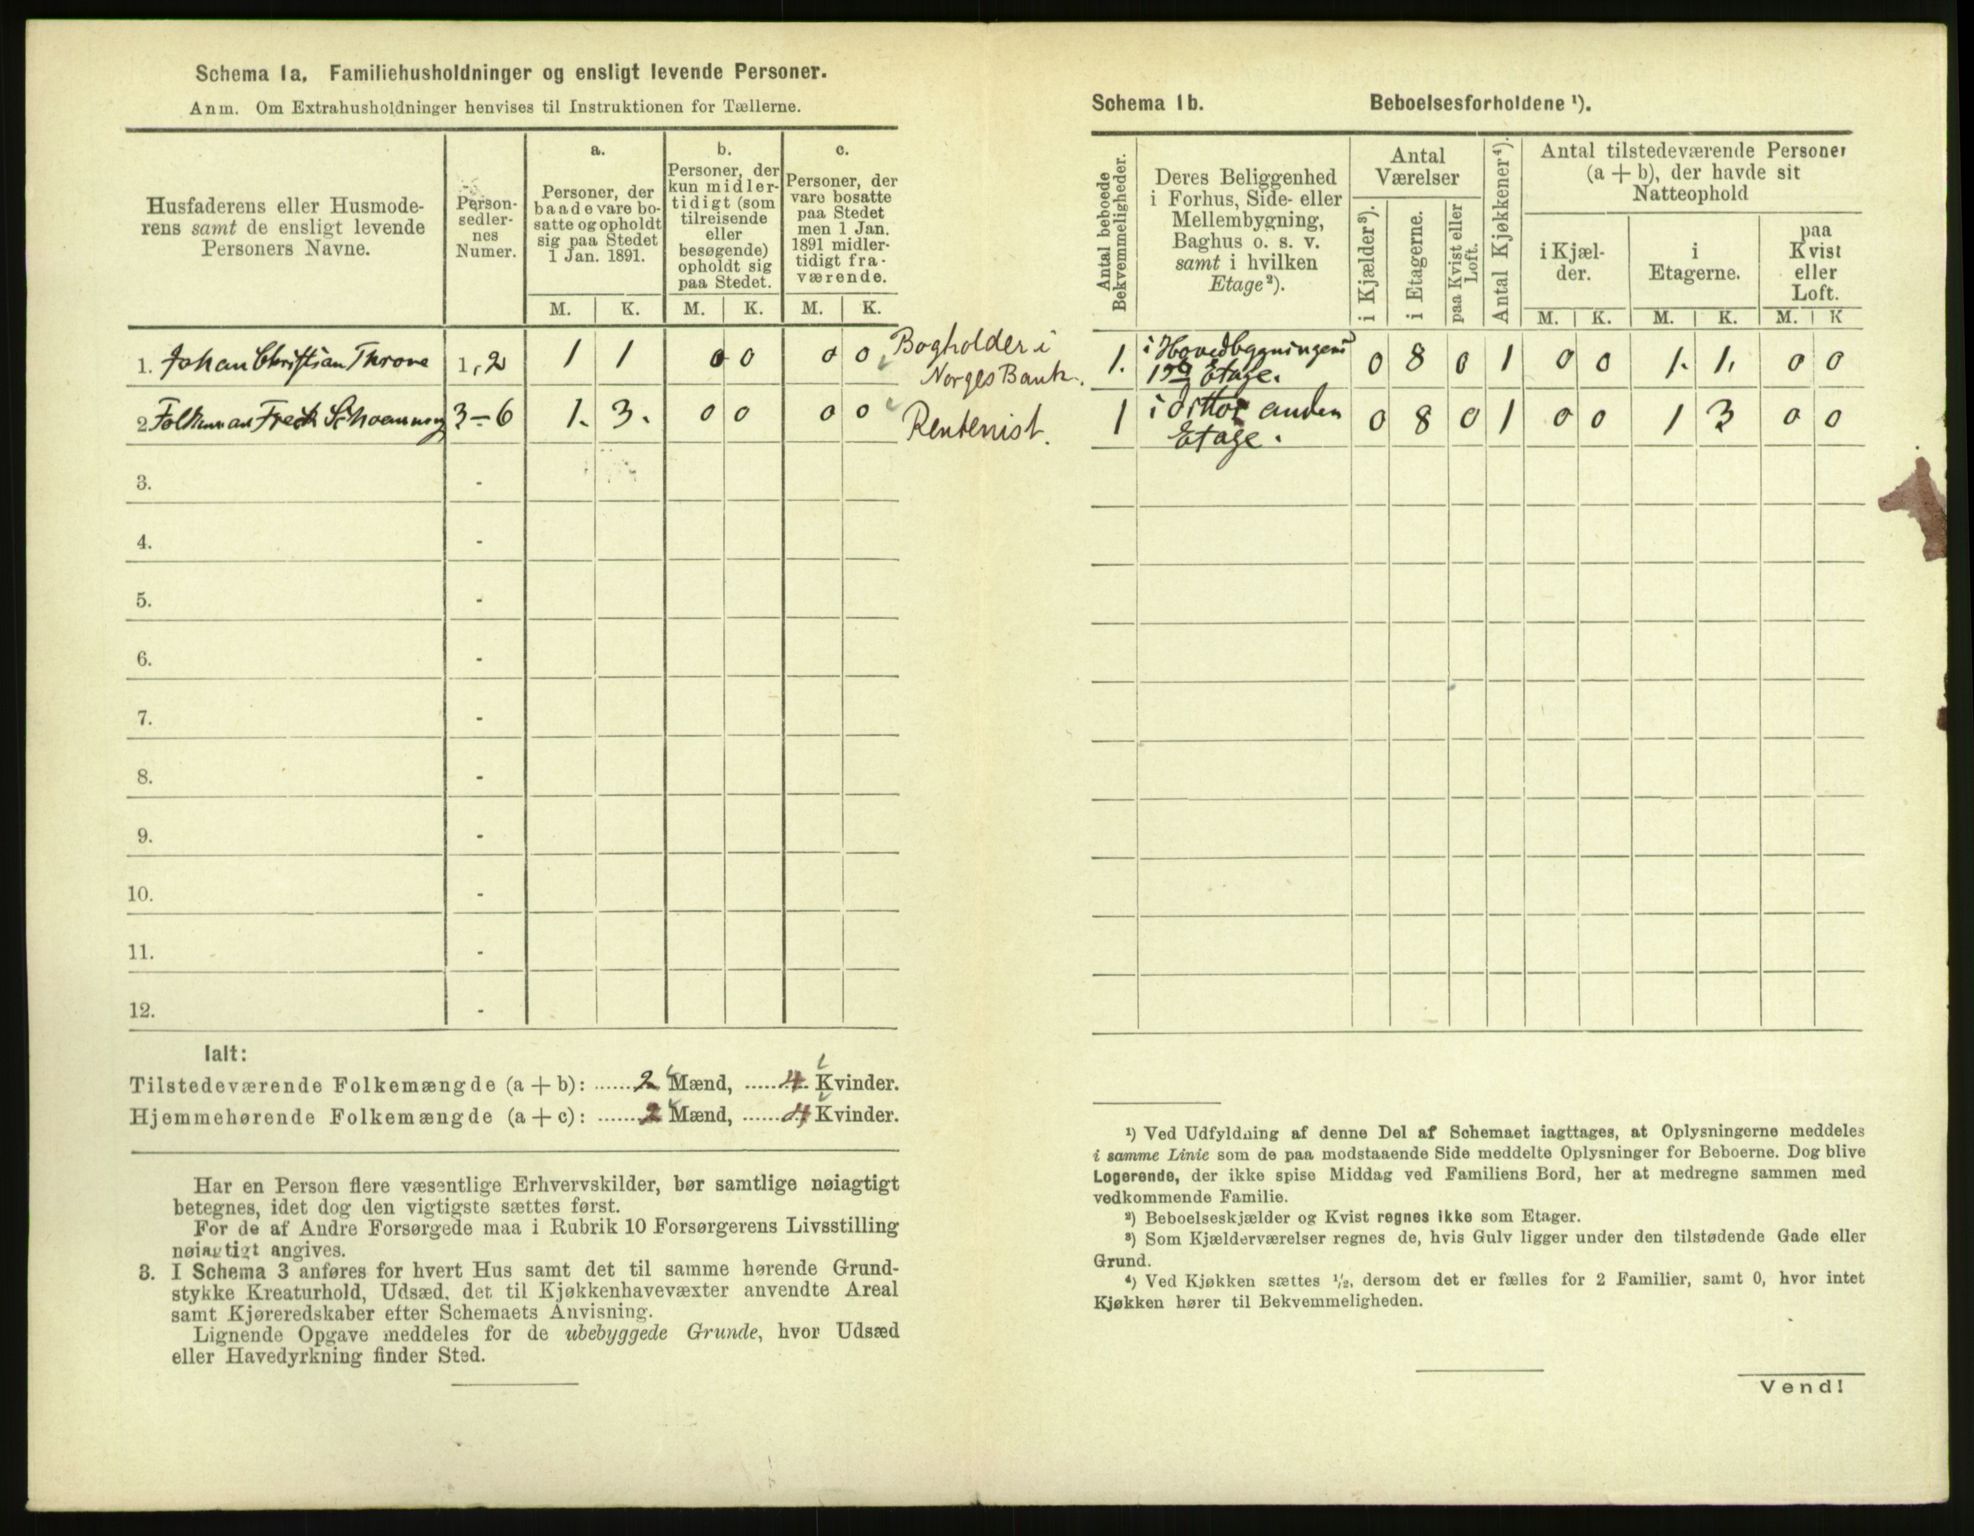 Schema 1a. Familiehusholdninger og ensligt levende Personer.
Anm. Om Extrahusholdninger henvises til Instruktionen for Tællerne.
Husfaderens eller Husmode-
rens samt de ensligt levende
Personers Navne.
Person-
sedler-
nes
Numer.
a.
Personer, der
baade vare bo-
satte og opholdt
sig paa Stedet
1 Jan. 1891.
b.
Personer, der
kun midler-
tidigt (som
tilreisende
eller
besøgende)
opholdt sig
paa Stedet.
c.
Personer, der
vare bosatte
paa Stedet
men 1 Jan.
1891 midler-
tidigt fra-
værende.
M. K. M. K. M. K.
1. Johan Christian Throne 1,2 1 1 0 0 0 0 Bogholder i
Norges Bank.
2. Fredk 3-6 1. 3. 0 0 0 0 Rentenist.
3. -
4. -
5. -
6. -
7. -
8. -
9. -
10. -
11. -
12. -
Ialt:
Tilstedeværende Folkemængde (a + b): ...... 2 Mænd, ...... 4 Kvinder.
Hjemmehørende Folkemængde (a + c): ...... 2 Mænd, ...... 4 Kvinder.
Har en Person flere væsentlige Erhvervskilder, bør samtlige nøiagtigt
betegnes, idet dog den vigtigste sættes først.
For de af Andre Forsørgede maa i Rubrik 10 Forsørgerens Livsstilling
nøiagtigt angives.
3. I Schema 3 anføres for hvert Hus samt det til samme hørende Grund-
stykke Kreaturhold, Udsæd, det til Kjøkkenhavevæxter anvendte Areal
samt Kjøreredskaber efter Schemaets Anvisning.
Lignende Opgave meddeles for de ubebyggede Grunde, hvor Udsæd
eller Havedyrkning finder Sted.
Schema 1b. Beboelsesforholdene ¹).
Antal beboede
Bekvemmeligheder.
Deres Beliggenhed
i Forhus, Side- eller
Mellembygning,
Baghus o. s. v.
samt i hvilken
Etage²).
Antal
Værelser
i Kjælder³).
i Etagerne.
paa Kvist eller
Loft.
Antal Kjøkkener⁴).
Antal tilstedeværende Personer
(a + b), der havde sit
Natteophold
i Kjæl-
der.
i
Etagerne.
paa
Kvist
eller
Loft.
M. K. M. K. M. K
1. i Hovedbygningens 0 8 0 1 0 0 1. 1. 0 0
1ste Etage.
1 i dittos anden 0 8 0 1 0 0 1 3 0 0
Etage.
¹) Ved Udfyldning af denne Del af Schemaet iagttages, at Oplysningerne meddeles
i samme Linie som de paa modstaaende Side meddelte Oplysninger for Beboerne. Dog blive
Logerende, der ikke spise Middag ved Familiens Bord, her at medregne sammen med
vedkommende Familie.
²) Beboelseskjælder og Kvist regnes ikke som Etager.
³) Som Kjælderværelser regnes de, hvis Gulv ligger under den tilstødende Gade eller
Grund.
⁴) Ved Kjøkken sættes ½, dersom det er fælles for 2 Familier, samt 0, hvor intet
Kjøkken hører til Bekvemmeligheden.
Vend!